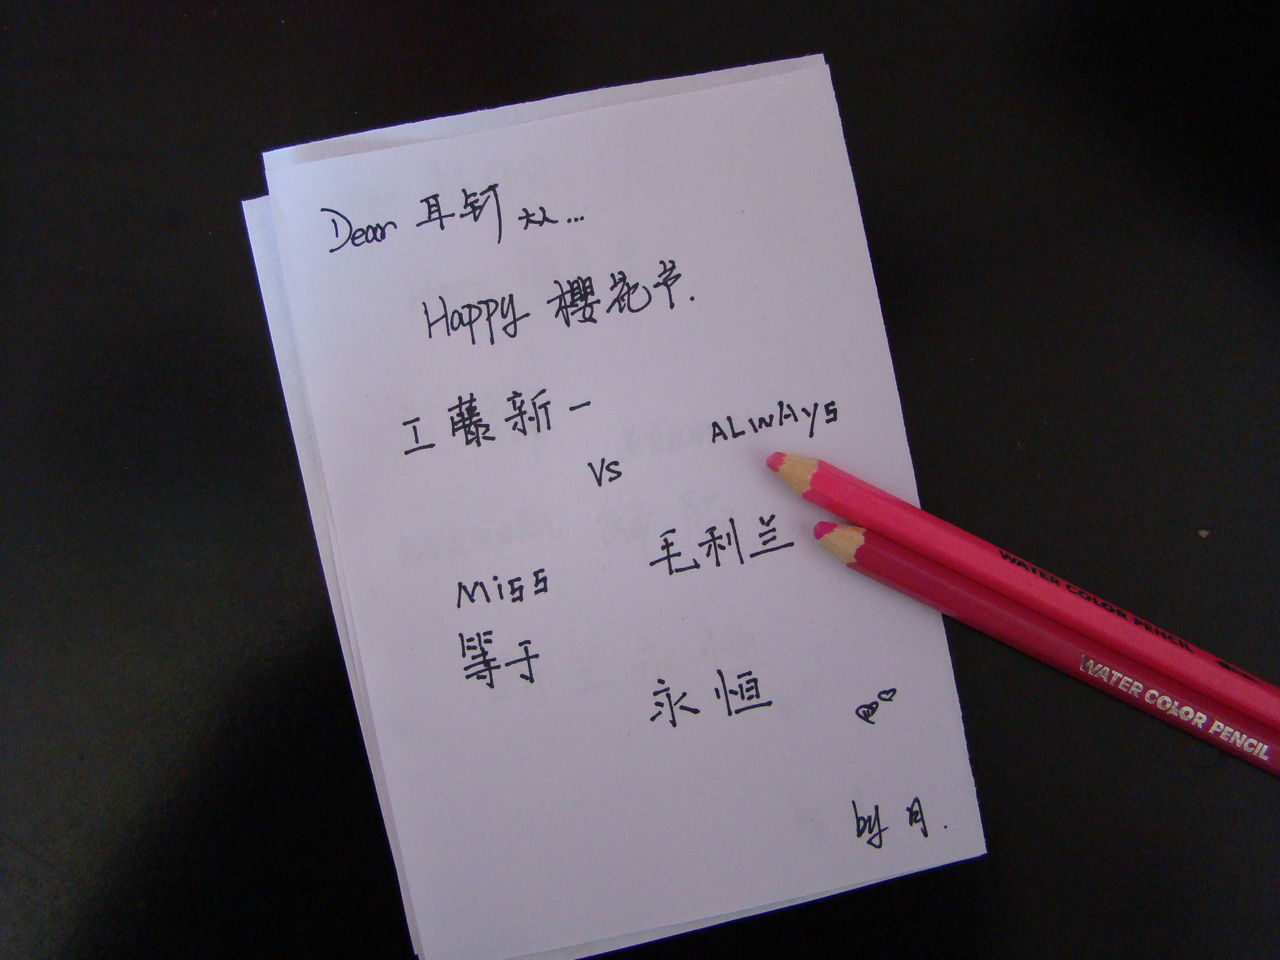 Dear 耳钉 大人...
Happy 樱花节.
工藤新一
ALWAYS
VS
毛利兰
Miss
等于
永恒
by 月.
WATER COLOR PENCIL
WATER COLOR PENCIL